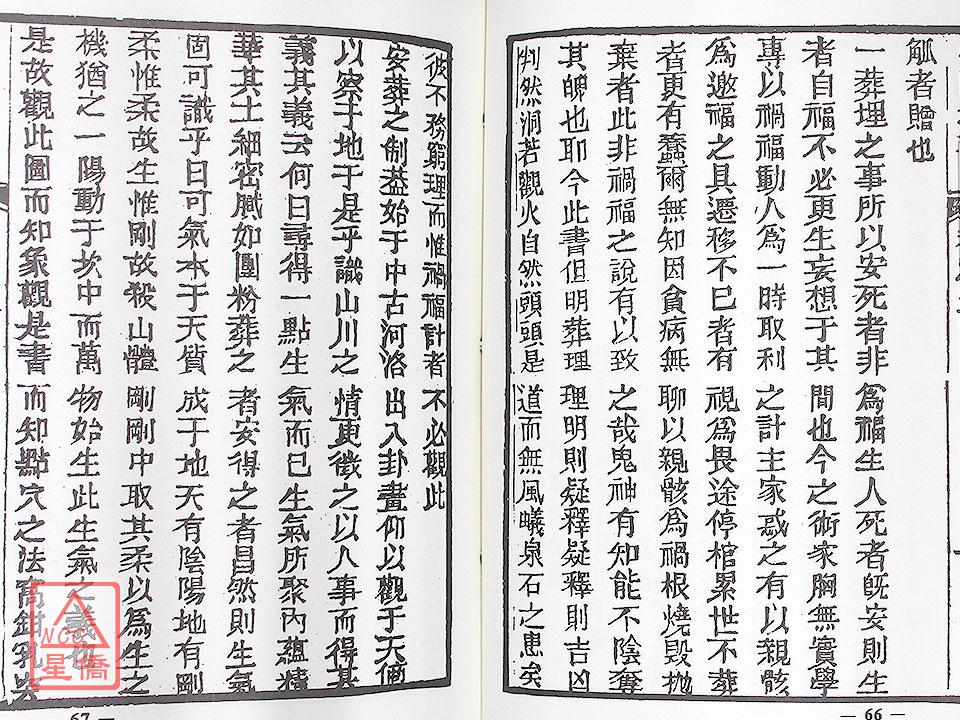 觚者贈也
一葬埋之事所以安死者非為福生人死者旣安則生
者自福不必更生妄想于其間也今之術家胸無實學
專以禍福動人為一時取利之計主家惑之有以親骸
為邀福之具遷移不已者有視為畏途停棺累世不葬
者更有蠢爾無知因貧病無聊以親骸為禍根燒毀抛
棄者此非禍福之說有以致之哉鬼神有知能不陰奪
其魄也耶今此書但明葬理理明則疑釋疑釋則吉凶
判然洞若觀火自然頭頭是道而無風曦泉石之患矣
— 66 —
彼不務窮理而惟禍福計者不必觀此
安葬之制葢始于中古河洛出入卦畫仰以觀于天俯
以察于地于是乎識山川之情更徵之以人事而得其
義其義云何曰尋得一點生氣而已生氣所聚內蘊精
華其土細密膩如團粉葬之者安得之者昌然則生氣
固可識乎曰可氣本于天質成于地天有陰陽地有剛
柔惟柔故生惟剛故殺山體剛剛中取其柔以為生之
機猶之一陽動于坎中而萬物始生此生氣之義也
是故觀此圖而知象觀是書而知點穴之法窩鉗乳突
67 —
NCC
星僑